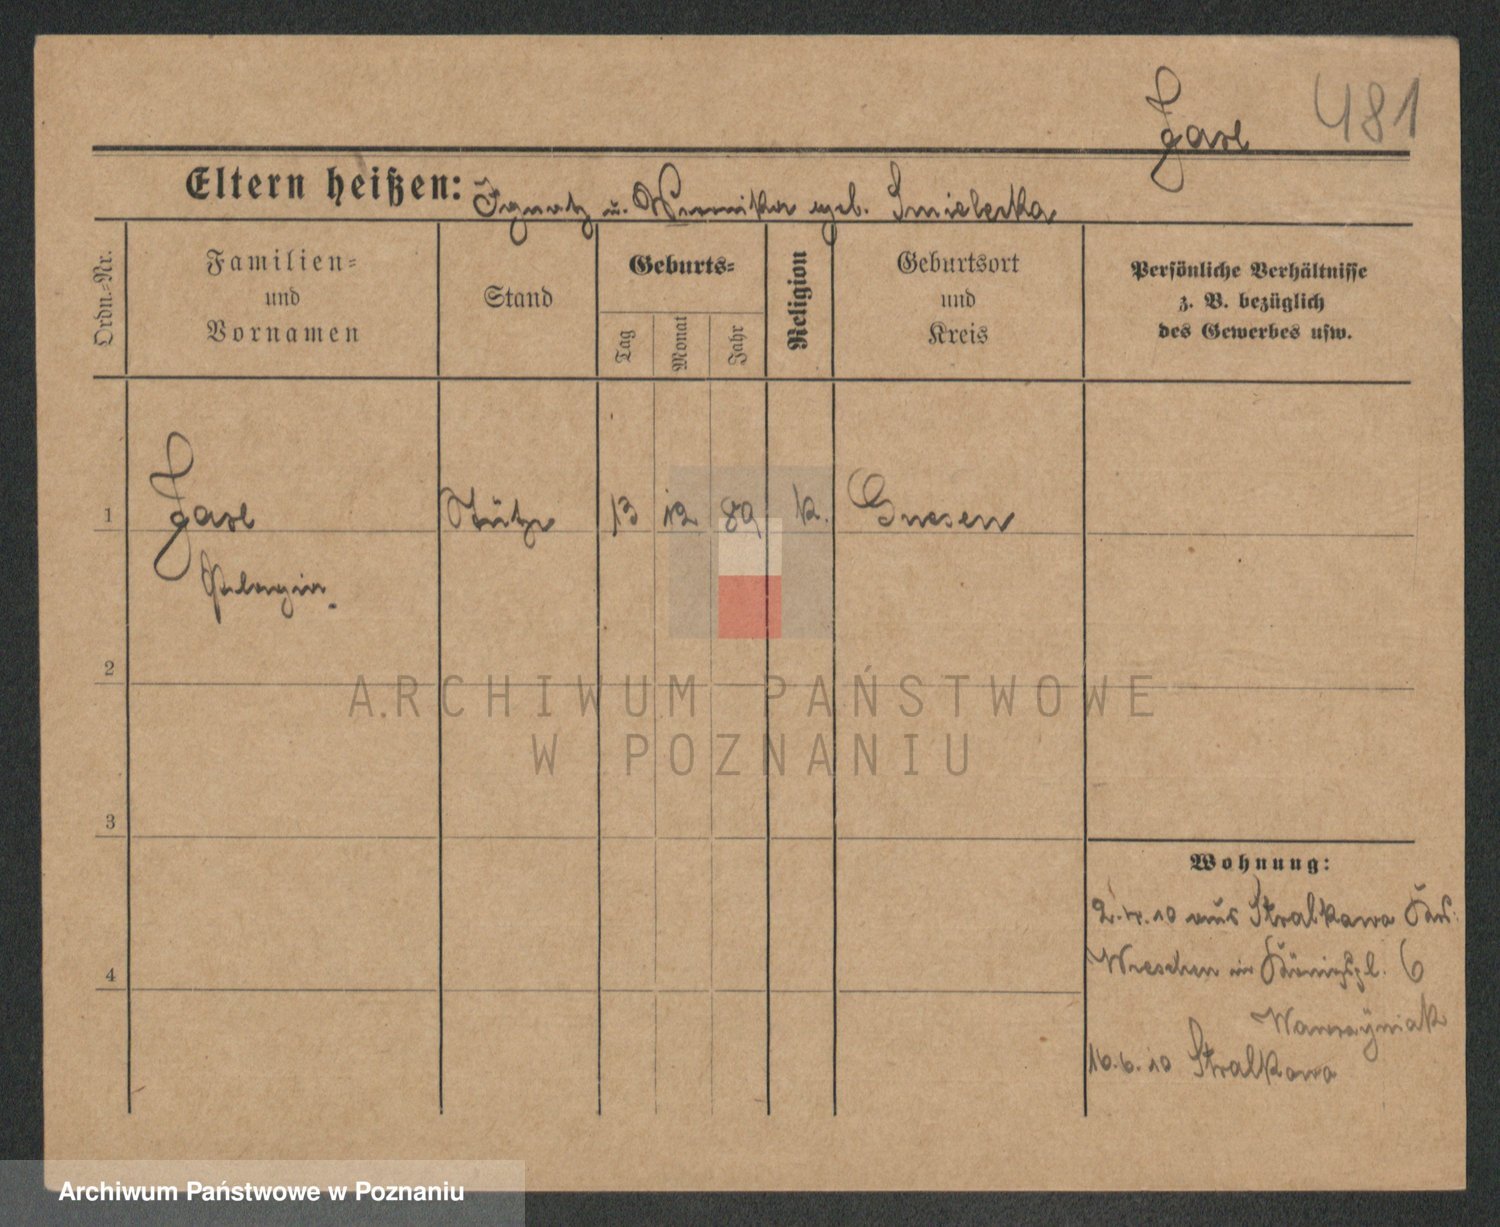 481
Jase
Eltern heißen: Ignatz u. Weronika geb. Smielecka
Ordn.-Nr.
Familien-
und
Vornamen
Stand
Geburts-
Tag
Monat
Jahr
Religion
Geburtsort
und
Kreis
Persönliche Verhältnisse
z. B. bezüglich
des Gewerbes usw.
1
Stütze 13 12 89 k. Gnesen
Pelagia.
2
3
4
Wohnung:
10 aus Stralkowo Krs.
Wreschen in Königspl. 6
Wawrzyniak
16.6.10 Stralkowo
ARCHIWUM PAŃSTWOWE
W POZNANIU
Archiwum Państwowe w Poznaniu